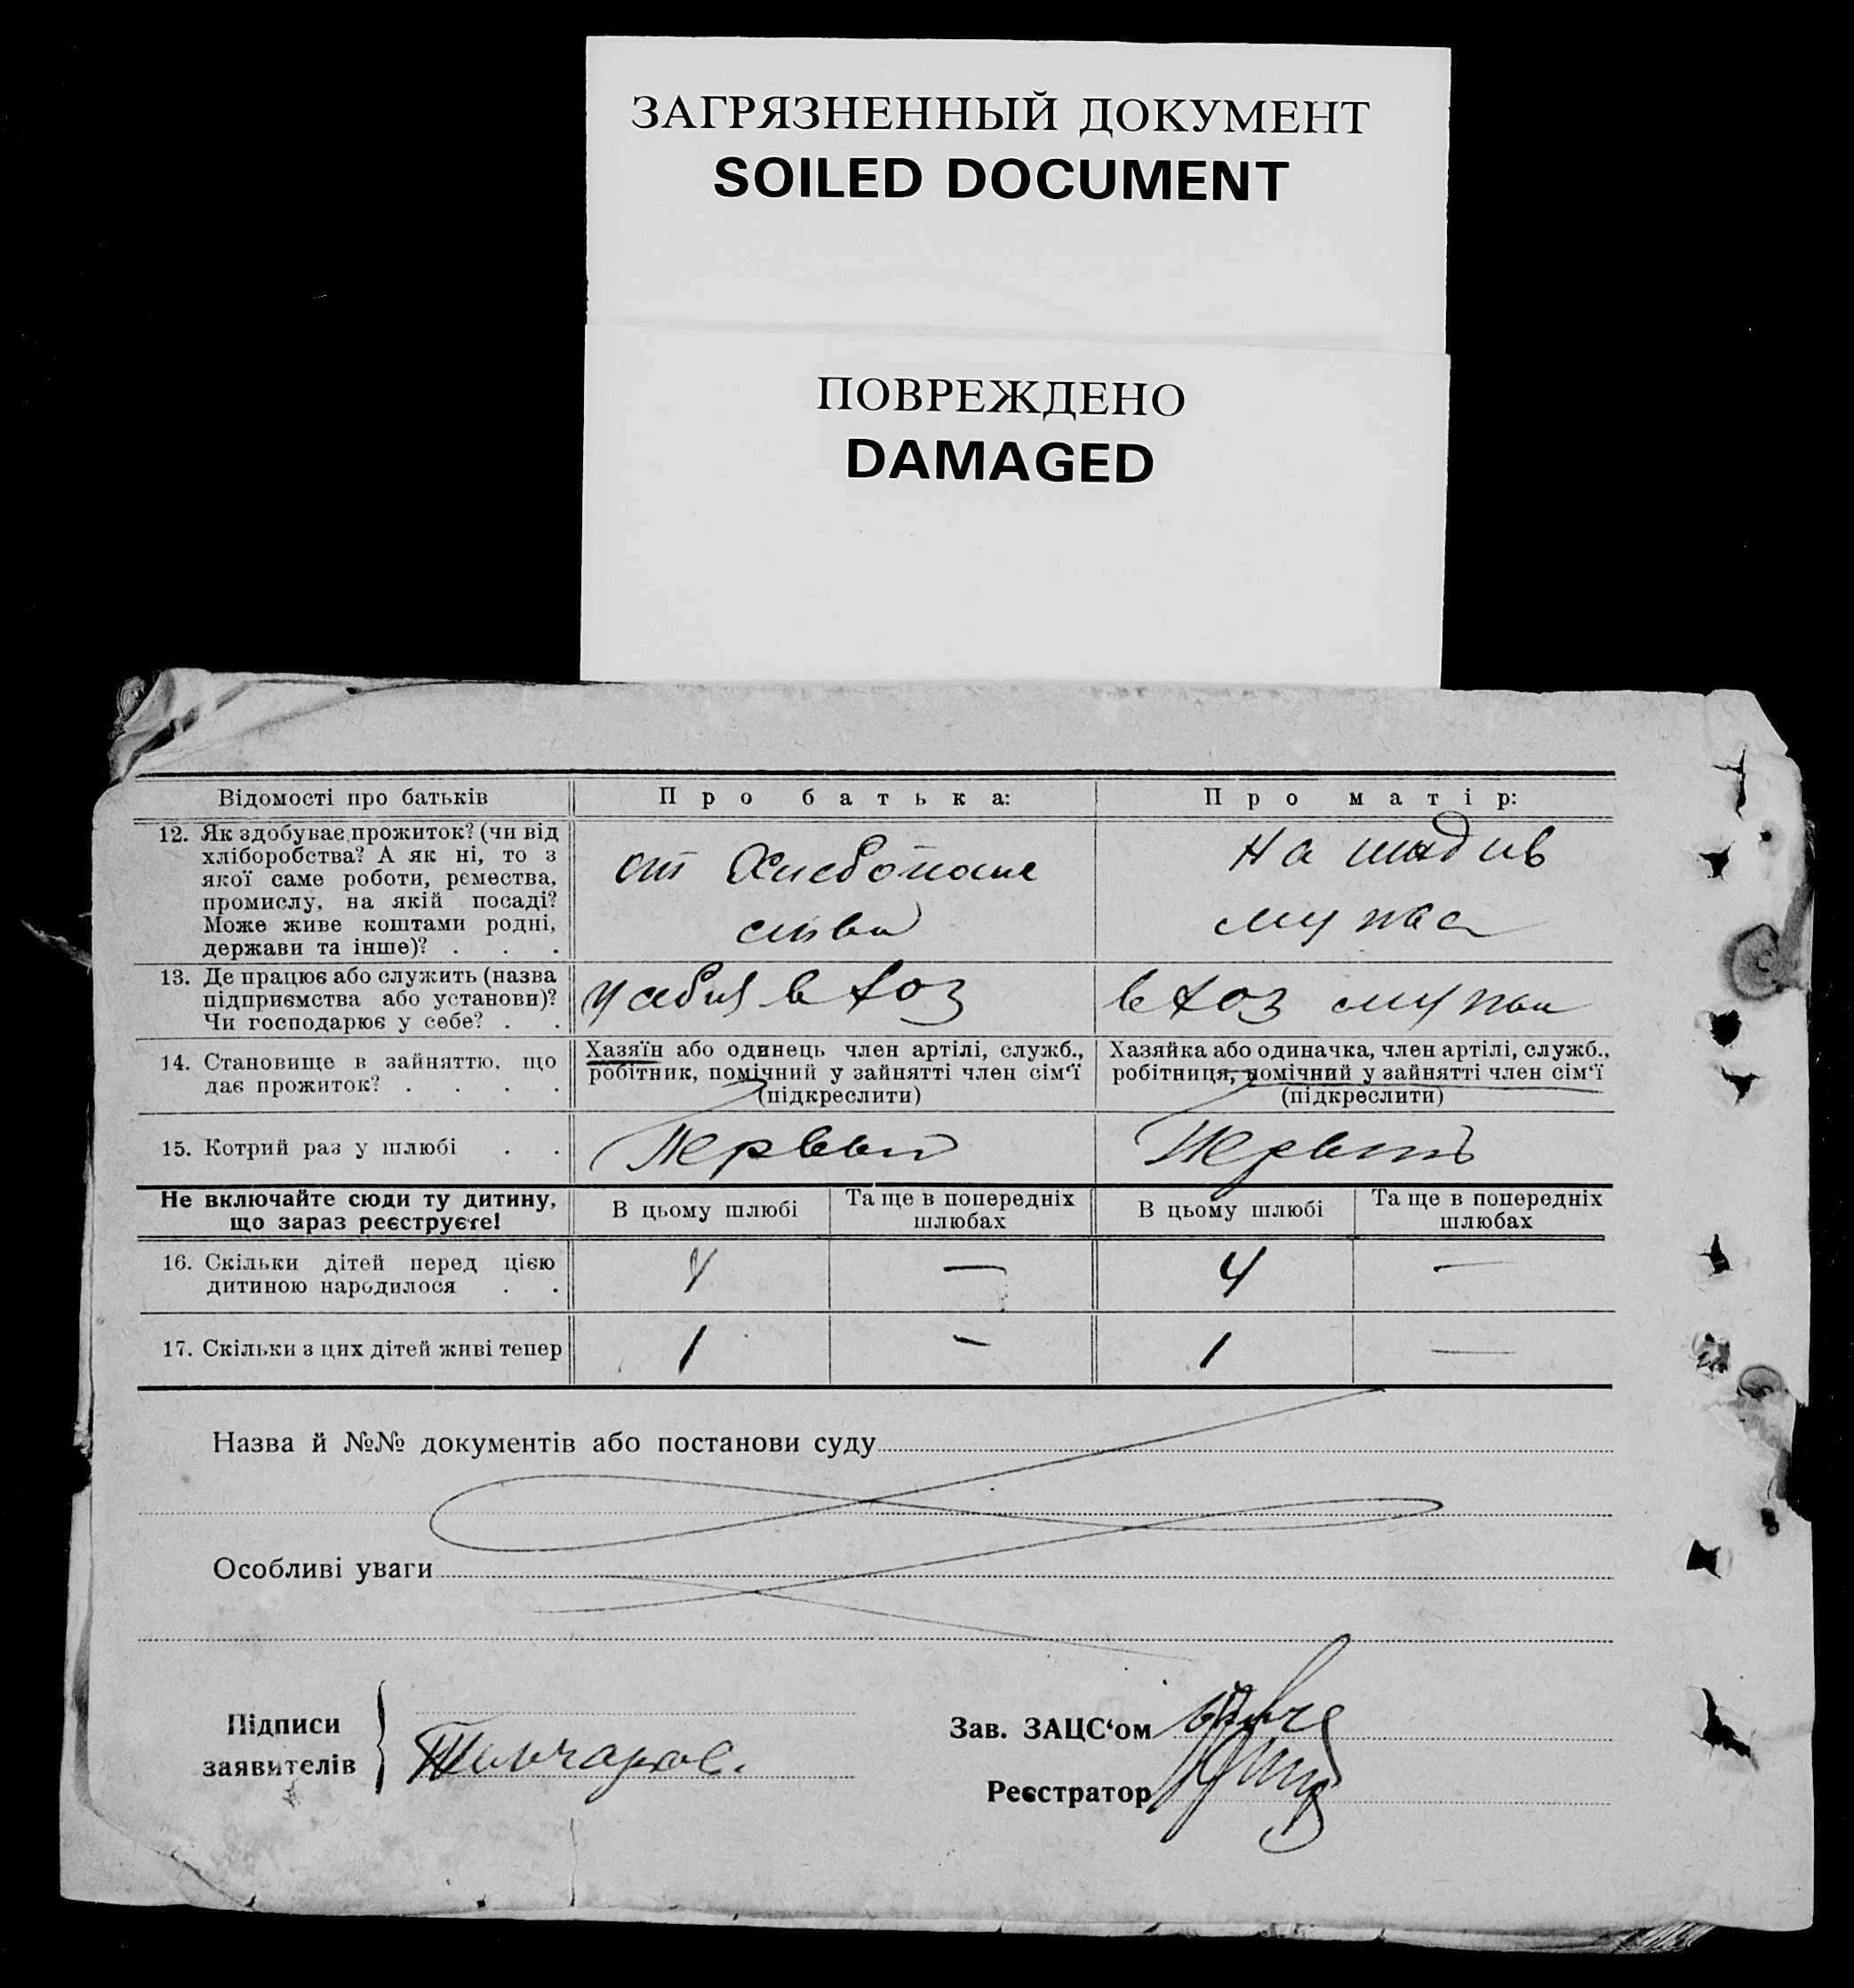 ЗАГРЯЗНЕННЫЙ ДОКУМЕНТ
SOILED DOCUMENT
ПОВРЕЖДЕНО
DAMAGED
Відомості про батьків
Про батька:
Про матір:
12. Як здобуває прожиток? (чи від
хліборобства? А як ні, то з
якої саме роботи, ремества,
промислу, на якій посаді?
Може живе коштами родні,
держави та інше)? . . .
от Хлебопаше
ства
На иждив
мужа
13. Де працює або служить (назва
підприємства або установи)?
Чи господарює у себе? . .
у себя в хоз
в хоз мужа
14. Становище в зайняттю, що
дає прожиток? . . . .
Хазяїн або одинець член артілі, служб.,
робітник, помічний у зайнятті член сім'ї
(підкреслити)
Хазяйка або одиначка, член артілі, служб.,
робітниця, помічний у зайнятті член сім'ї
(підкреслити)
15. Котрий раз у шлюбі . .
Первый
Первый
Не включайте сюди ту дитину,
що зараз реєструєте!
В цьому шлюбі
Та ще в попередніх
шлюбах
В цьому шлюбі
Та ще в попередніх
шлюбах
16. Скільки дітей перед цією
дитиною народилося . .
4 — 4 —
17. Скільки з цих дітей живі тепер
1 — 1 —
Назва й №№ документів або постанови суду
Особливі уваги
Підписи
заявителів
Зав. ЗАЦС'ом
Реєстратор